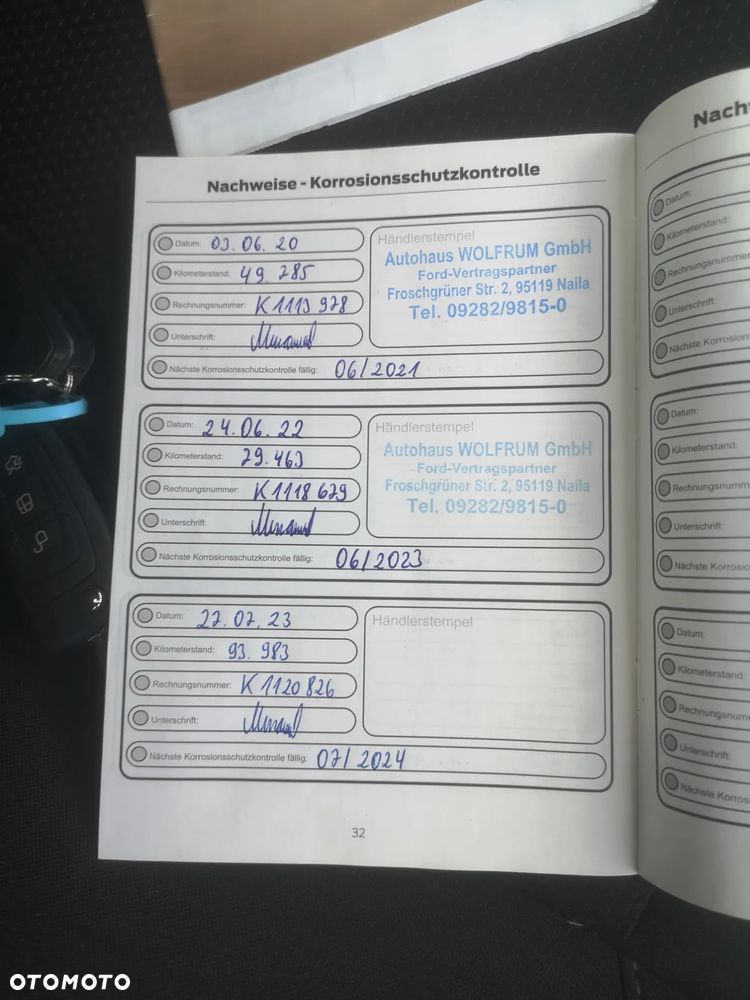 Nachweise - Korrosionsschutzkontrolle
Datum: 03.06.20
Kilometerstand: 49.285
Rechnungsnummer: K1113978
Unterschrift:
Nächste Korrosionsschutzkontrolle fällig: 06/2021
Händlerstempel
Autohaus WOLFRUM GmbH
Ford-Vertragspartner
Froschgrüner Str. 2, 95119 Naila
Tel. 09282/9815-0
Datum: 24.06.22
Kilometerstand: 79.463
Rechnungsnummer: K1118679
Unterschrift:
Nächste Korrosionsschutzkontrolle fällig: 06/2023
Händlerstempel
Autohaus WOLFRUM GmbH
Ford-Vertragspartner
Froschgrüner Str. 2, 95119 Naila
Tel. 09282/9815-0
Datum: 27.07.23
Kilometerstand: 93.983
Rechnungsnummer: K1120826
Unterschrift:
Nächste Korrosionsschutzkontrolle fällig: 07/2024
Händlerstempel
32
Nach
Datum:
Kilometerstand:
Rechnungsnummer
Unterschrift:
Nächste Korrosion
Datum:
Kilometerstand:
Rechnungsnumm
Unterschrift:
Nächste Korrosio
Datum:
Kilometerstand:
Rechnungsnum
Unterschrift:
Nächste Korros
OTOMOTO